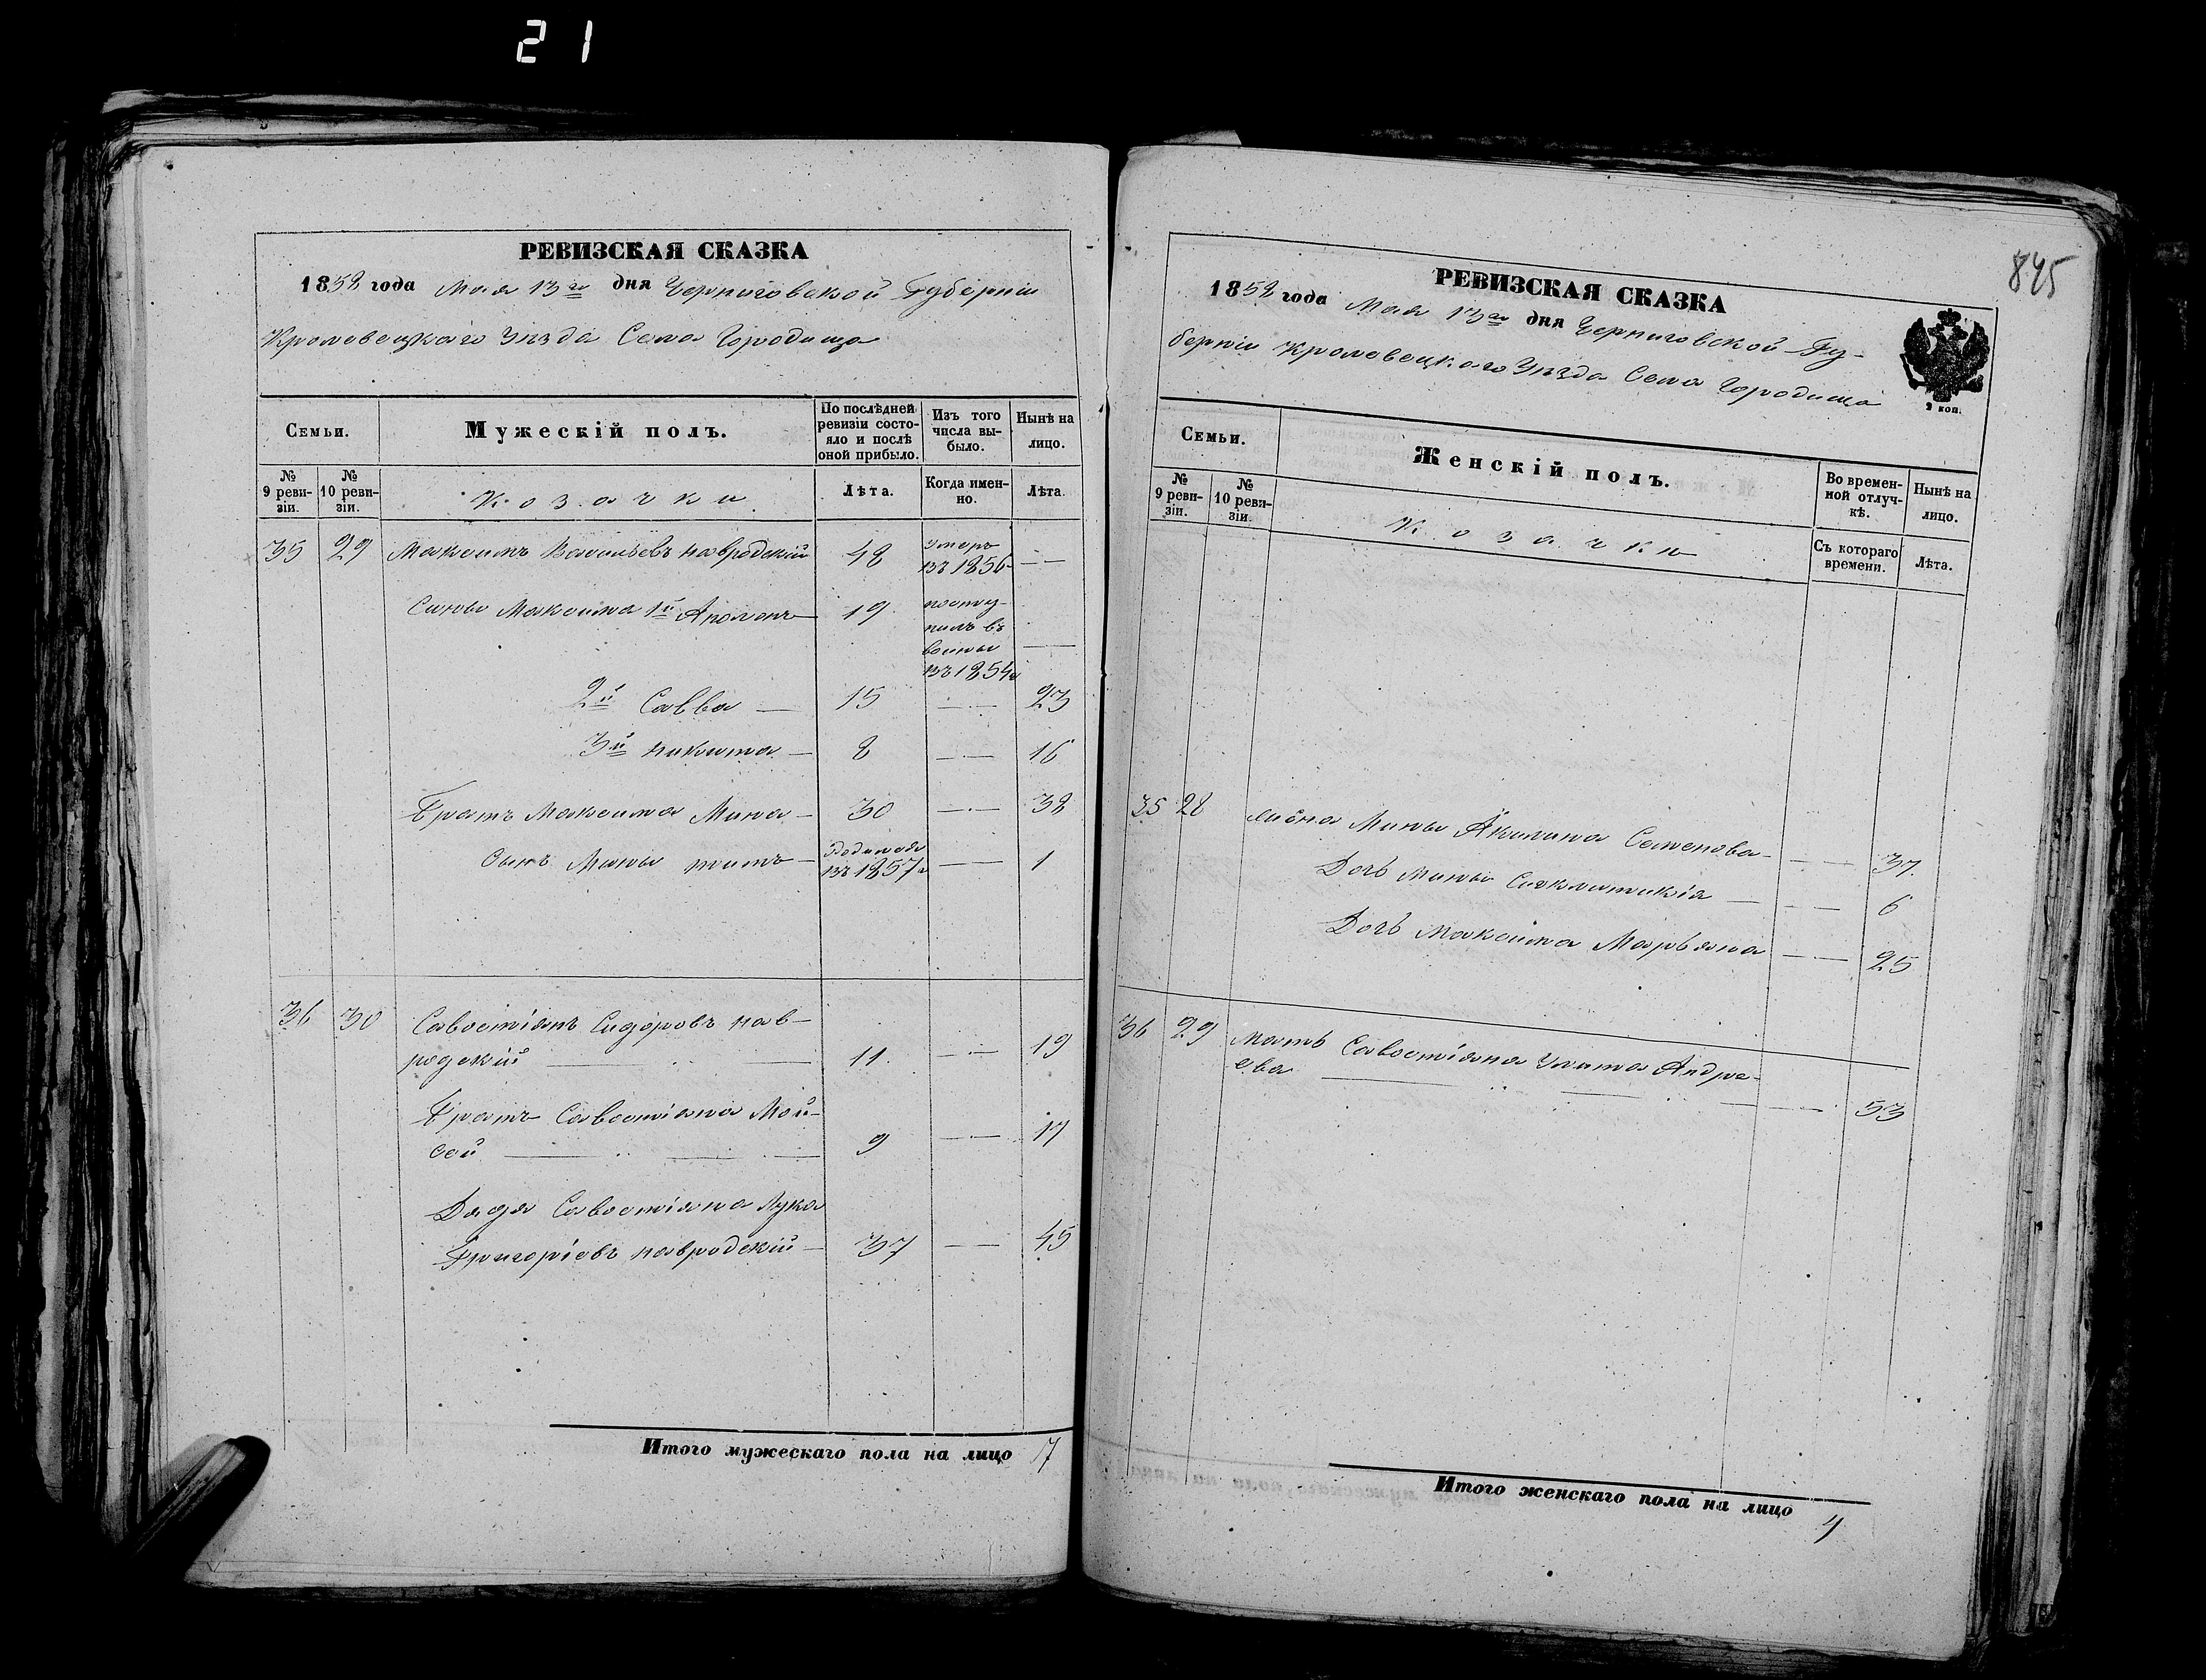 21
РЕВИЗСКАЯ СКАЗКА
1858 года Мая 13го дня Черниговской Губерніи
Кролевецкаго Уѣзда Села Городища
Семьи.
Мужескій полъ.
По послѣдней ревизіи состояло и послѣ оной прибыло.
Изъ того числа выбыло.
Нынѣ на лицо.
№ 9 ревизіи.
№ 10 ревизіи.
Козачки
Лѣта.
Когда именно.
Лѣта.
35 29 Максимъ Васильевъ Навродскій 48 умеръ въ 1856 —
Сыны Максима 1й Аполонъ 19 поступилъ въ воины въ 1854 —
2й Савва — 15 — 23
3й Никита — 8 — 16
Братъ Максима Мина — 30 — 38
Сынъ Мины Титъ — родился въ 1857 — 1
36 30 Савостіянъ Сидоровъ Нав-
родскій — 11 — 19
Братъ Савостіяна Мой-
сей — 9 — 17
Дядя Савостіяна Лука
Григоріевъ Навродскій — 37 — 45
Итого мужескаго пола на лицо 7
845
РЕВИЗСКАЯ СКАЗКА
1858 года Мая 13го дня Черниговской Гу-
берніи Кролевецкаго Уѣзда Села Городища
2 коп.
Семьи.
Женскій полъ.
Во временной отлучкѣ.
Нынѣ на лицо.
№ 9 ревизіи.
№ 10 ревизіи.
Козачки
Съ котораго времени.
Лѣта.
35 28 Жена Мины Акилина Семенова — 37
Дочь Мины Синклитикія — 6
Дочь Максима Марьяна — 25
36 29 Мать Савостіяна Улита Андре-
ева — 53
Итого женскаго пола на лицо 4